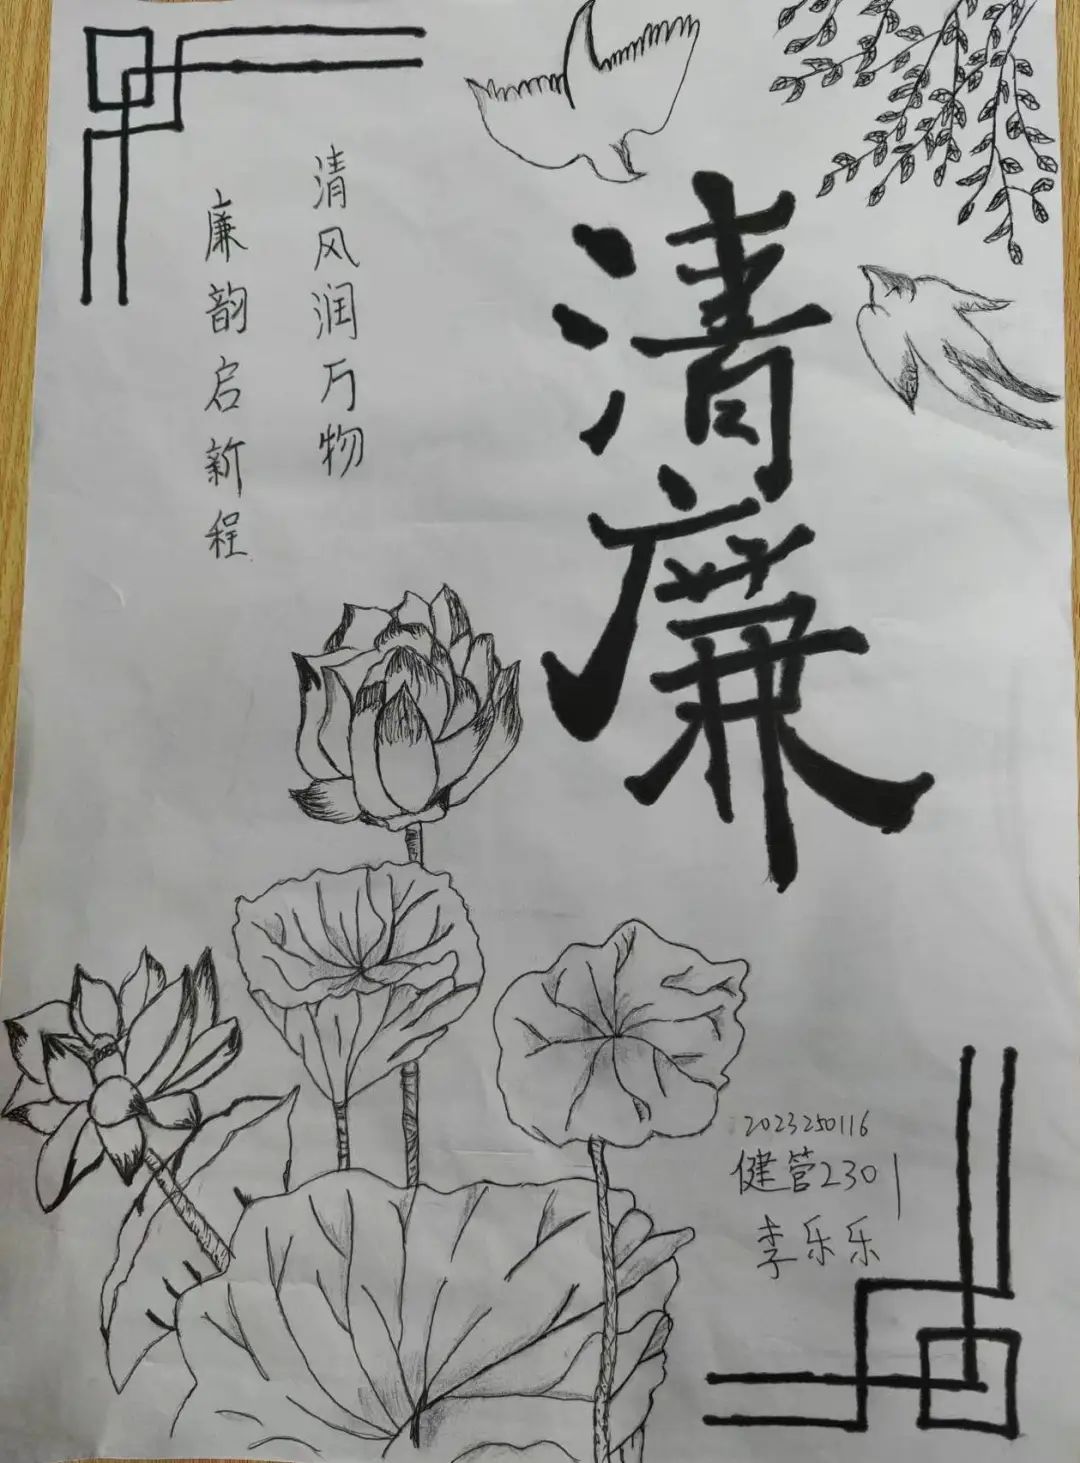 清廉
清风润万物
廉韵启新程
2023250116
健管2301
李乐乐